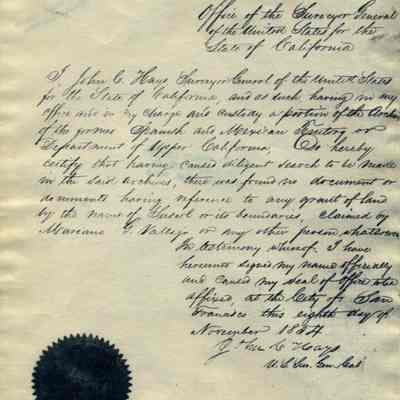 Office of the Surveyor General
of the United States for the
State of California
I John C. Hays Surveyor General of the United States
for the State of California, and as such having in my
office and in my charge and custody a portion of the Archives
of the former Spanish and Mexican Territory or
Department of Upper California, Do hereby
certify that having caused diligent search to be made
in the said archives, there was found no document or
documents having reference to any grant of land
by the name of Suscol or its boundaries, claimed by
Mariano G. Vallejo or any other person whatsoever
In testimony whereof I have
hereunto signed my name officially
and caused my seal of office to be
affixed, at the City of San
Francisco this eighth day of
November 1854
John C Hays
U.S. Sur. Gen. Cal